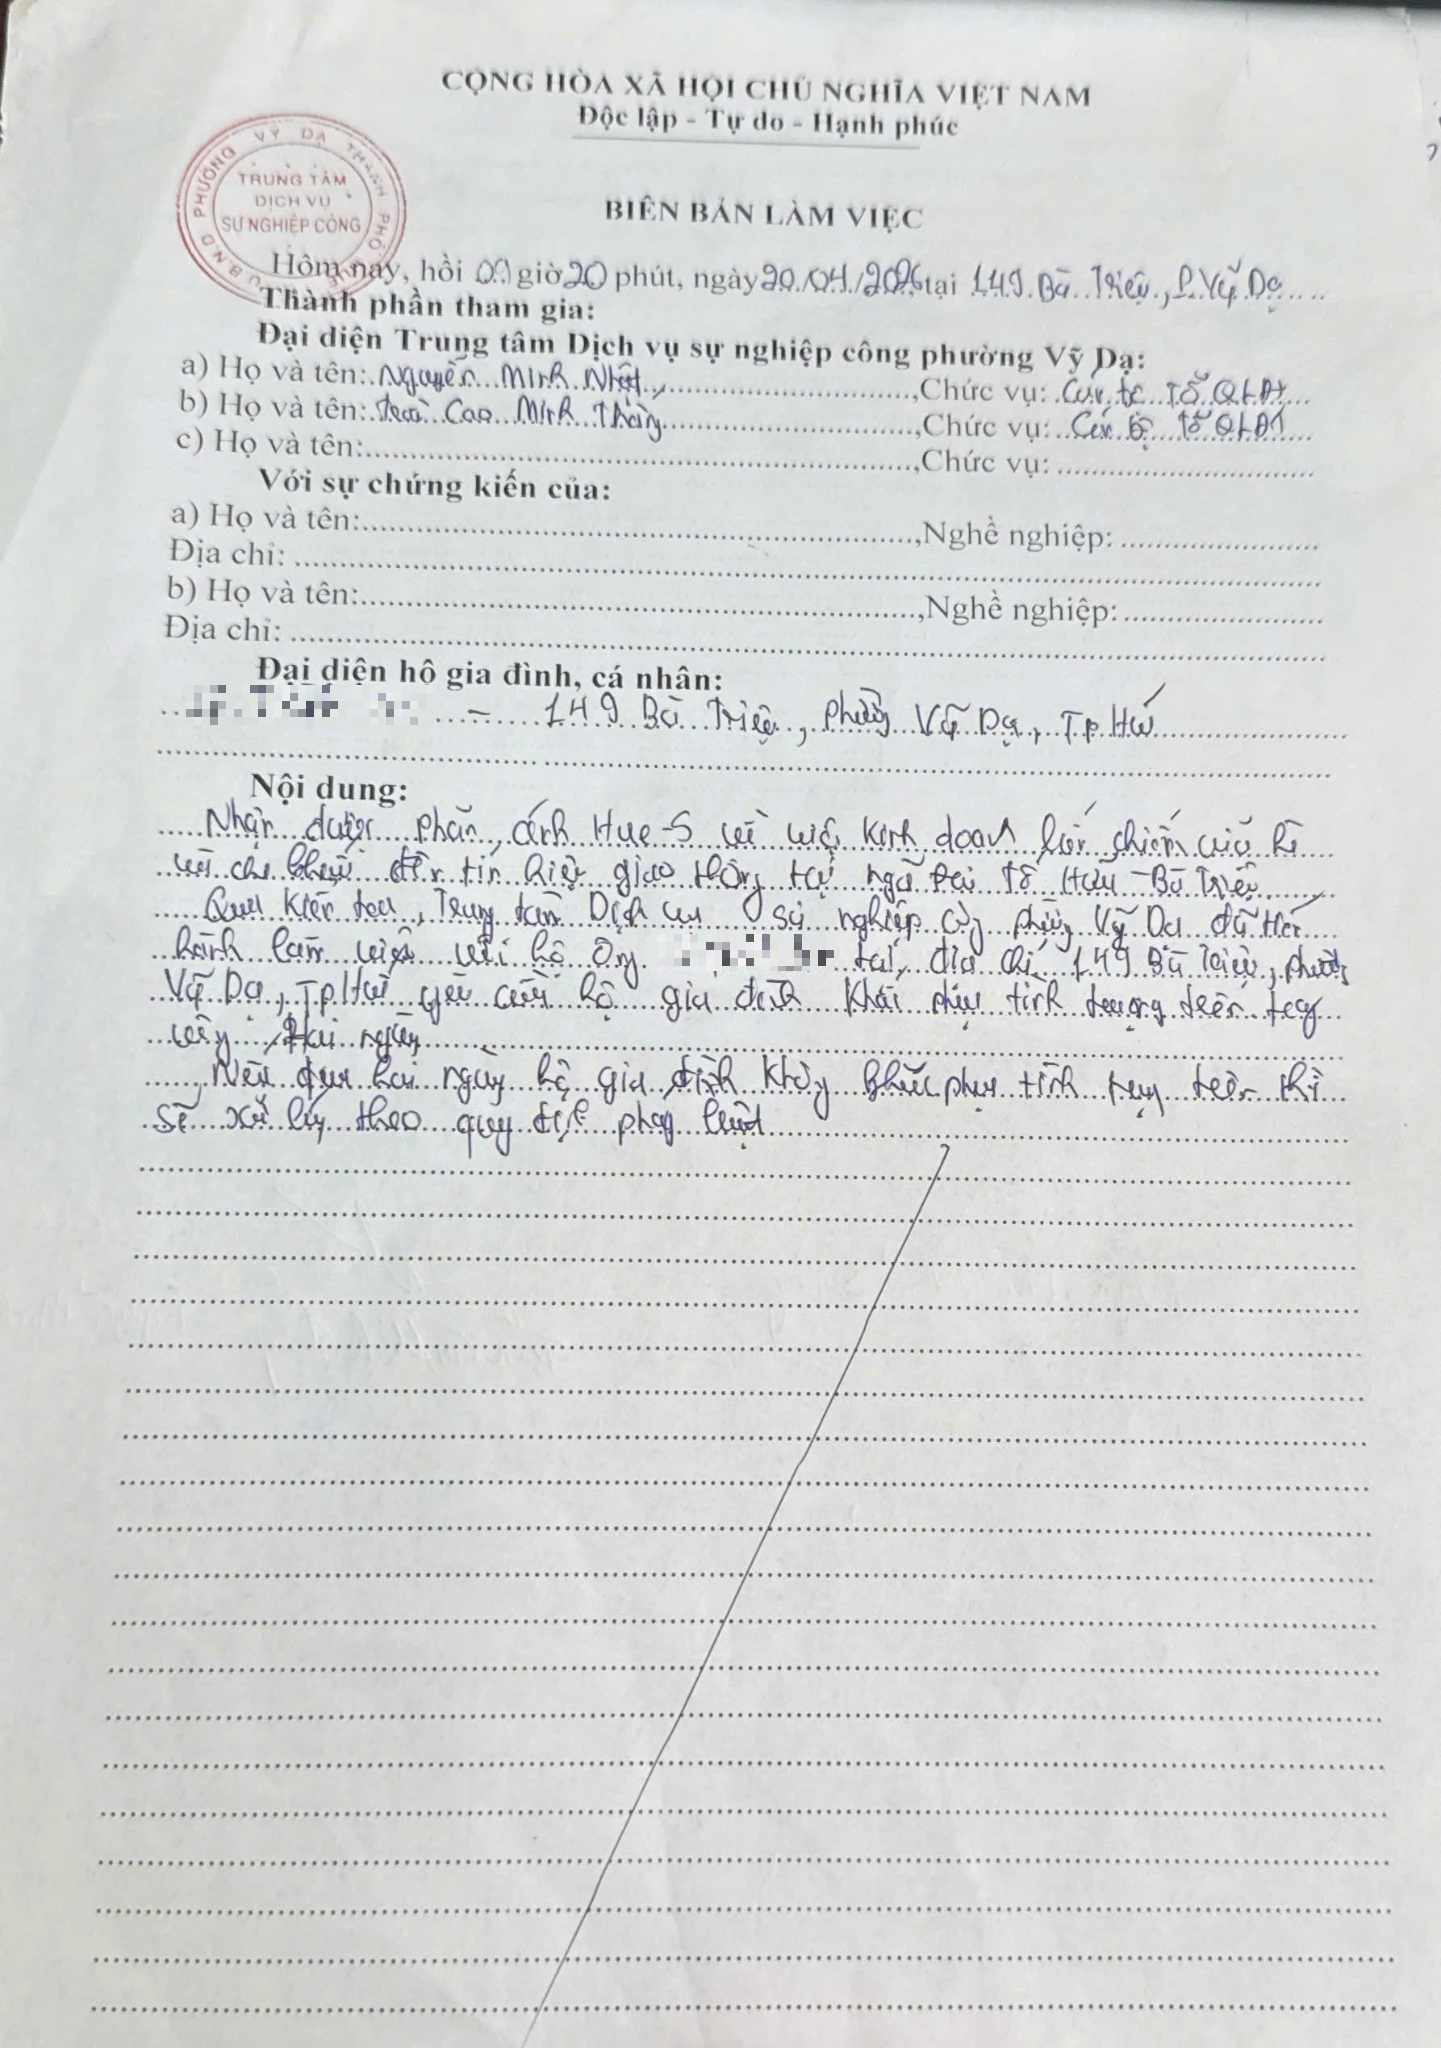 CỘNG HÒA XÃ HỘI CHỦ NGHĨA VIỆT NAM
Độc lập - Tự do - Hạnh phúc
U.B.N.D PHƯỜNG VỸ DẠ THÀNH PHỐ HUẾ
TRUNG TÂM
DỊCH VỤ
SỰ NGHIỆP CÔNG
BIÊN BẢN LÀM VIỆC
Hôm nay, hồi 09 giờ 20 phút, ngày 20/04/2026, tại 149 Bà Triệu, P. Vỹ Dạ
Thành phần tham gia:
Đại diện Trung tâm Dịch vụ sự nghiệp công phường Vỹ Dạ:
a) Họ và tên: Nguyễn Minh Nhật, Chức vụ: Tổ QLĐT
b) Họ và tên: Cao Minh, Chức vụ: Cán bộ Tổ QLĐT
c) Họ và tên:, Chức vụ:
Với sự chứng kiến của:
a) Họ và tên:, Nghề nghiệp:
Địa chỉ:
b) Họ và tên:, Nghề nghiệp:
Địa chỉ:
Đại diện hộ gia đình, cá nhân:
- 149 Bà Triệu, phường Vỹ Dạ, Tp Huế
Nội dung:
Nhận được phản ánh Hue-S về việc kinh doanh lấn chiếm vỉa hè
và che khuất đèn tín hiệu giao thông tại ngã Tố Hữu - Bà Triệu.
Qua kiểm tra, Trung tâm Dịch vụ sự nghiệp công phường Vỹ Dạ đã tiến
hành làm việc với hộ Ông tại địa chỉ 149 Bà Triệu, phường
Vỹ Dạ, Tp Huế yêu cầu hộ gia đình khắc phục tình trạng trên trong
vòng hai ngày
Nếu qua hai ngày hộ gia đình không khắc phục tình trạng trên thì
sẽ xử lý theo quy định pháp luật